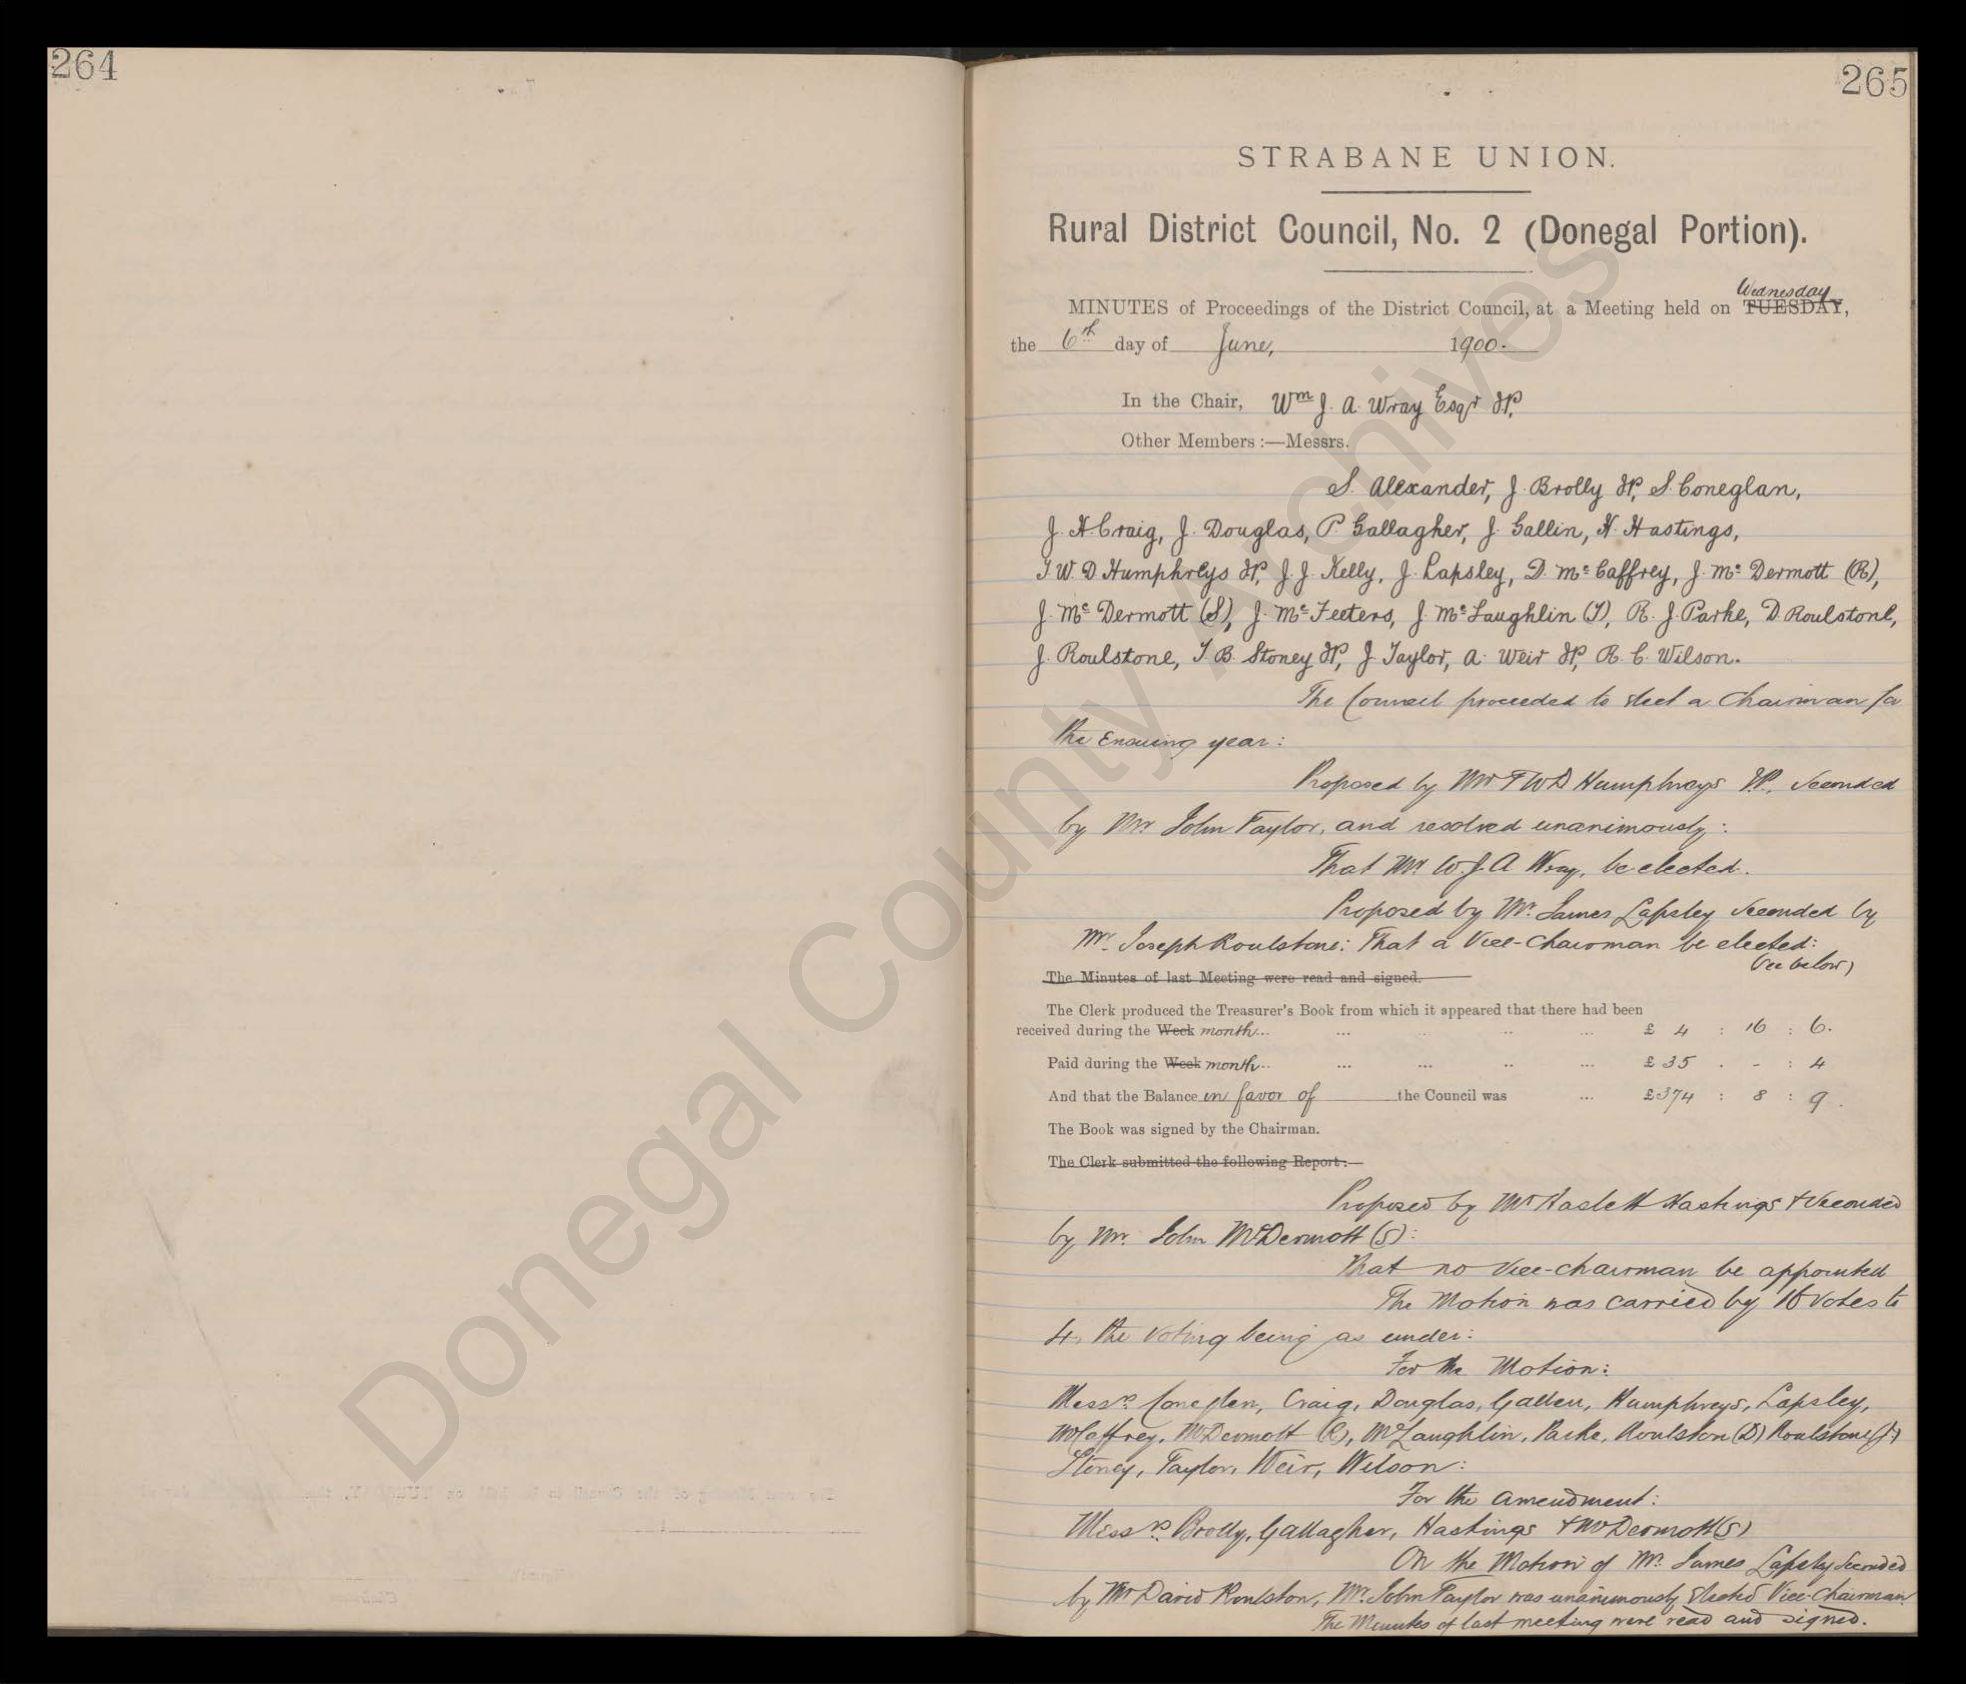 264
265
STRABANE UNION.
Rural District Council, No. 2 (Donegal Portion).
Wednesday
MINUTES of Proceedings of the District Council, at a Meeting held on TUESDAY,
the 6th day of June, 1900.
In the Chair, Wm J. A. Wray Esqr JP.
Other Members :—Messrs.
S. Alexander, J. Brolly JP, S. Coneglan,
J. H. Craig, J. Douglas, P. Gallagher, J. Gallin, H. Hastings,
T W. D Humphreys JP, J. J. Kelly, J. Lapsley, D. Mc Caffrey, J. Mc Dermott (R),
J. Mc Dermott (S), J. Mc Feeters, J. Mc Laughlin (T), R. J. Parke, D. Roulstone,
J. Roulstone, T. B. Stoney JP, J. Taylor, A. Weir JP, R. C. Wilson.
The Council proceeded to elect a Chairman for
the ensuing year:
Proposed by Mr T W D Humphreys J.P. Seconded
by Mr John Taylor, and resolved unanimously:
That Mr W. J. A Wray, be elected.
Proposed by Mr. James Lapsley Seconded by
Mr. Joseph Roulstone: That a Vice-Chairman be elected:
(See below)
The Minutes of last Meeting were read and signed.
The Clerk produced the Treasurer's Book from which it appeared that there had been
received during the Week month... ... ... ... £ 4 : 16 : 6.
Paid during the Week month... ... ... ... ... £ 35 . - : 4
And that the Balance in favor of the Council was ... £374 : 8 : 9.
The Book was signed by the Chairman.
The Clerk submitted the following Report:—
Proposed by Mr Haslett Hastings & Seconded
by Mr. John McDermott (S):
That no Vice-Chairman be appointed
The Motion was carried by 16 votes to
4, the voting being as under:
For the Motion:
Messrs. Coneglan, Craig, Douglas, Gallen, Humphreys, Lapsley,
McCaffrey, McDermott (R), McLaughlin, Parke, Roulston (D) Roulstone (J)
Stoney, Taylor, Weir, Wilson:
For the Amendment:
Messrs. Brolly, Gallagher, Hastings & McDermott (S)
On the Motion of Mr. James Lapsley Seconded
by Mr David Roulston, Mr. John Taylor was unanimously Elected Vice-Chairman
The Minutes of last meeting were read and signed.
Donegal County Archives